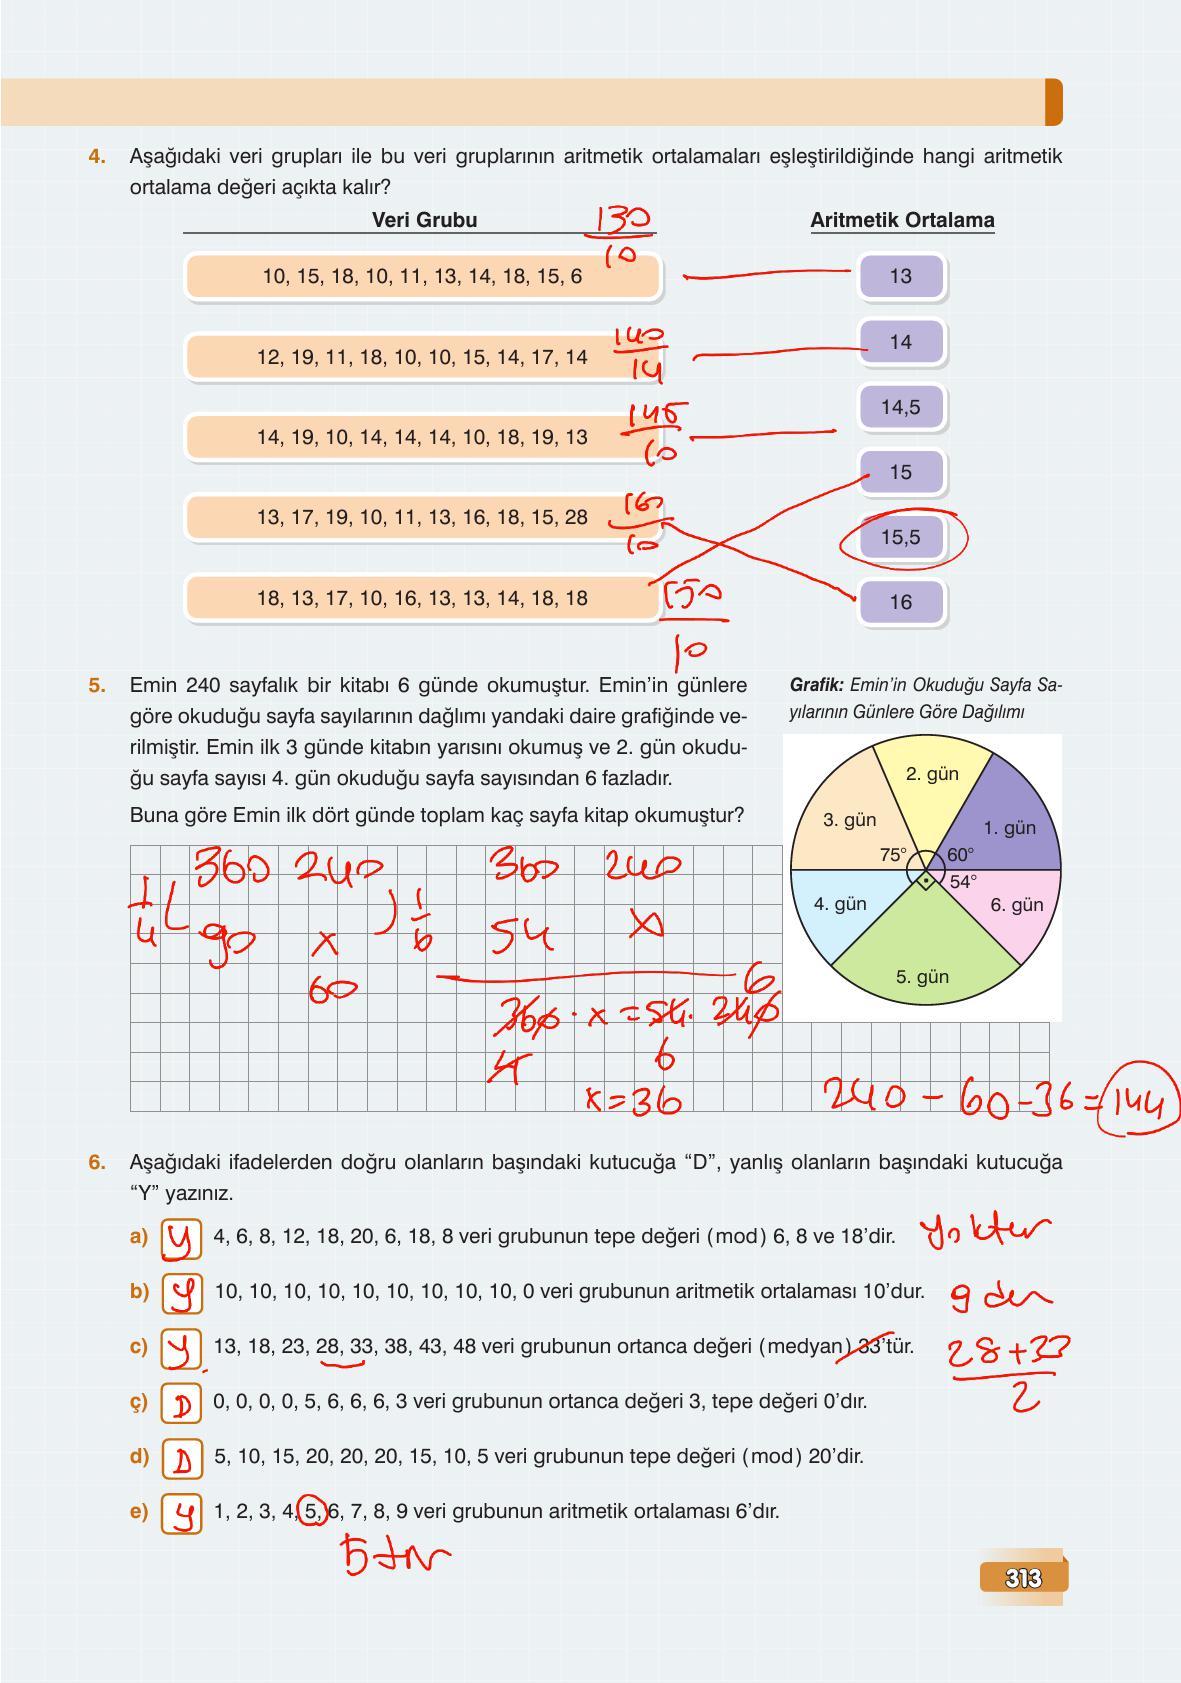 4. Aşağıdaki veri grupları ile bu veri gruplarının aritmetik ortalamaları eşleştirildiğinde hangi aritmetik
ortalama değeri açıkta kalır?
Veri Grubu
130
10
Aritmetik Ortalama
10, 15, 18, 10, 11, 13, 14, 18, 15, 6
13
12, 19, 11, 18, 10, 10, 15, 14, 17, 14
140
14
14
14, 19, 10, 14, 14, 14, 10, 18, 19, 13
145
10
14,5
13, 17, 19, 10, 11, 13, 16, 18, 15, 28
160
10
15
15,5
18, 13, 17, 10, 16, 13, 13, 14, 18, 18
150
10
16
5. Emin 240 sayfalık bir kitabı 6 günde okumuştur. Emin’in günlere
göre okuduğu sayfa sayılarının dağlımı yandaki daire grafiğinde ve-
rilmiştir. Emin ilk 3 günde kitabın yarısını okumuş ve 2. gün okudu-
ğu sayfa sayısı 4. gün okuduğu sayfa sayısından 6 fazladır.
Buna göre Emin ilk dört günde toplam kaç sayfa kitap okumuştur?
Grafik: Emin’in Okuduğu Sayfa Sa-
yılarının Günlere Göre Dağılımı
2. gün
3. gün
1. gün
75°
60°
54°
4. gün
6. gün
5. gün
360 240
1/4
90 x
1/6
60
360 240
54 x
6
360 · x = 54 · 240
4 6
x = 36
240 - 60 - 36 = 144
6. Aşağıdaki ifadelerden doğru olanların başındaki kutucuğa “D”, yanlış olanların başındaki kutucuğa
“Y” yazınız.
a) Y 4, 6, 8, 12, 18, 20, 6, 18, 8 veri grubunun tepe değeri (mod) 6, 8 ve 18’dir. yoktur
b) Y 10, 10, 10, 10, 10, 10, 10, 10, 10, 0 veri grubunun aritmetik ortalaması 10’dur. 9 dur
c) Y 13, 18, 23, 28, 33, 38, 43, 48 veri grubunun ortanca değeri (medyan) 33’tür. 28+33
2
ç) D 0, 0, 0, 0, 5, 6, 6, 6, 3 veri grubunun ortanca değeri 3, tepe değeri 0’dır.
d) D 5, 10, 15, 20, 20, 20, 15, 10, 5 veri grubunun tepe değeri (mod) 20’dir.
e) Y 1, 2, 3, 4, 5, 6, 7, 8, 9 veri grubunun aritmetik ortalaması 6’dır.
5 tir
313